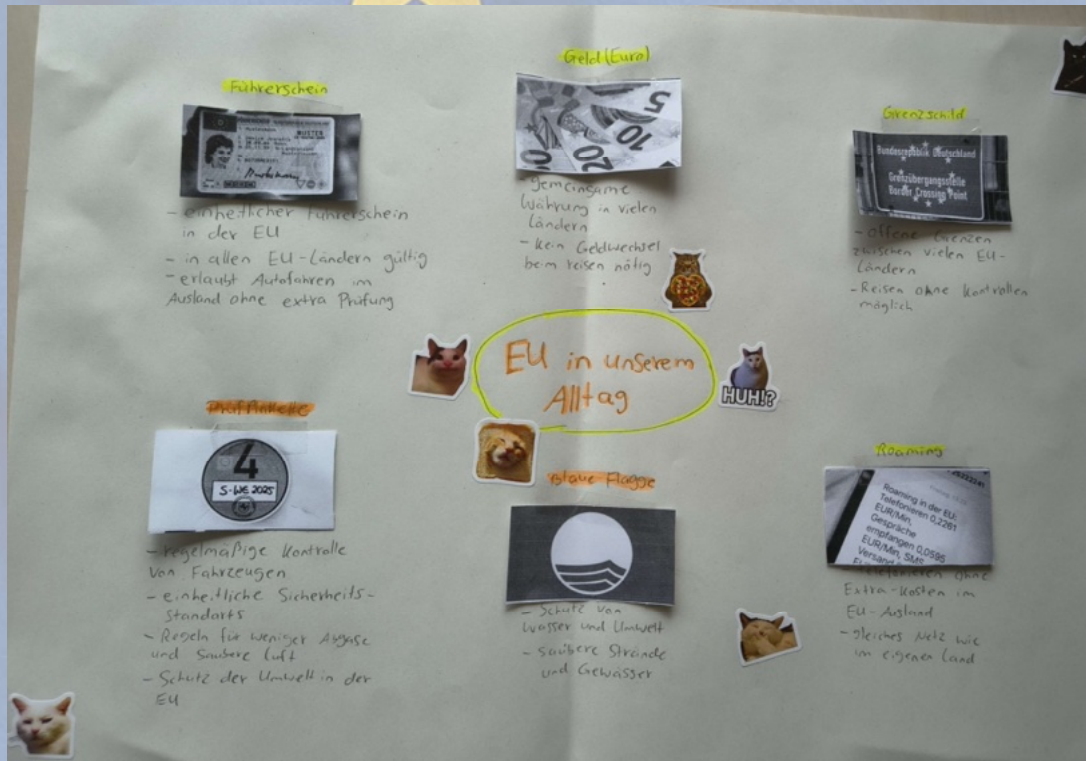 Führerschein
MUSTER
- einheitlicher Führerschein
in der EU
- in allen EU-Ländern gültig
- erlaubt Autofahren im
Ausland ohne extra Prüfung
Geld (Euro)
5
10
20
- gemeinsame
Währung in vielen
Ländern
- kein Geldwechsel
beim reisen nötig
Grenzschild
Bundesrepublik Deutschland
Grenzübergangsstelle
Border Crossing Point
- offene Grenzen
zwischen vielen EU-
Ländern
- Reisen ohne Kontrollen
möglich
EU in unserem
Alltag
HUH!?
4
S-WE 2025
- regelmäßige Kontrolle
von Fahrzeugen
- einheitliche Sicherheits-
standarts
- Regeln für weniger Abgase
und saubere Luft
- Schutz der Umwelt in der
EU
Blaue Flagge
- Schutz von
Wasser und Umwelt
- saubere Strände
und Gewässer
Roaming
Roaming in der EU:
Telefonieren 0,2261
EUR/Min,
Gespräche
empfangen 0,0595
EUR/Min, SMS
Versand
- Telefonieren ohne
Extra-Kosten im
EU-Ausland
- gleiches Netz wie
im eigenen Land